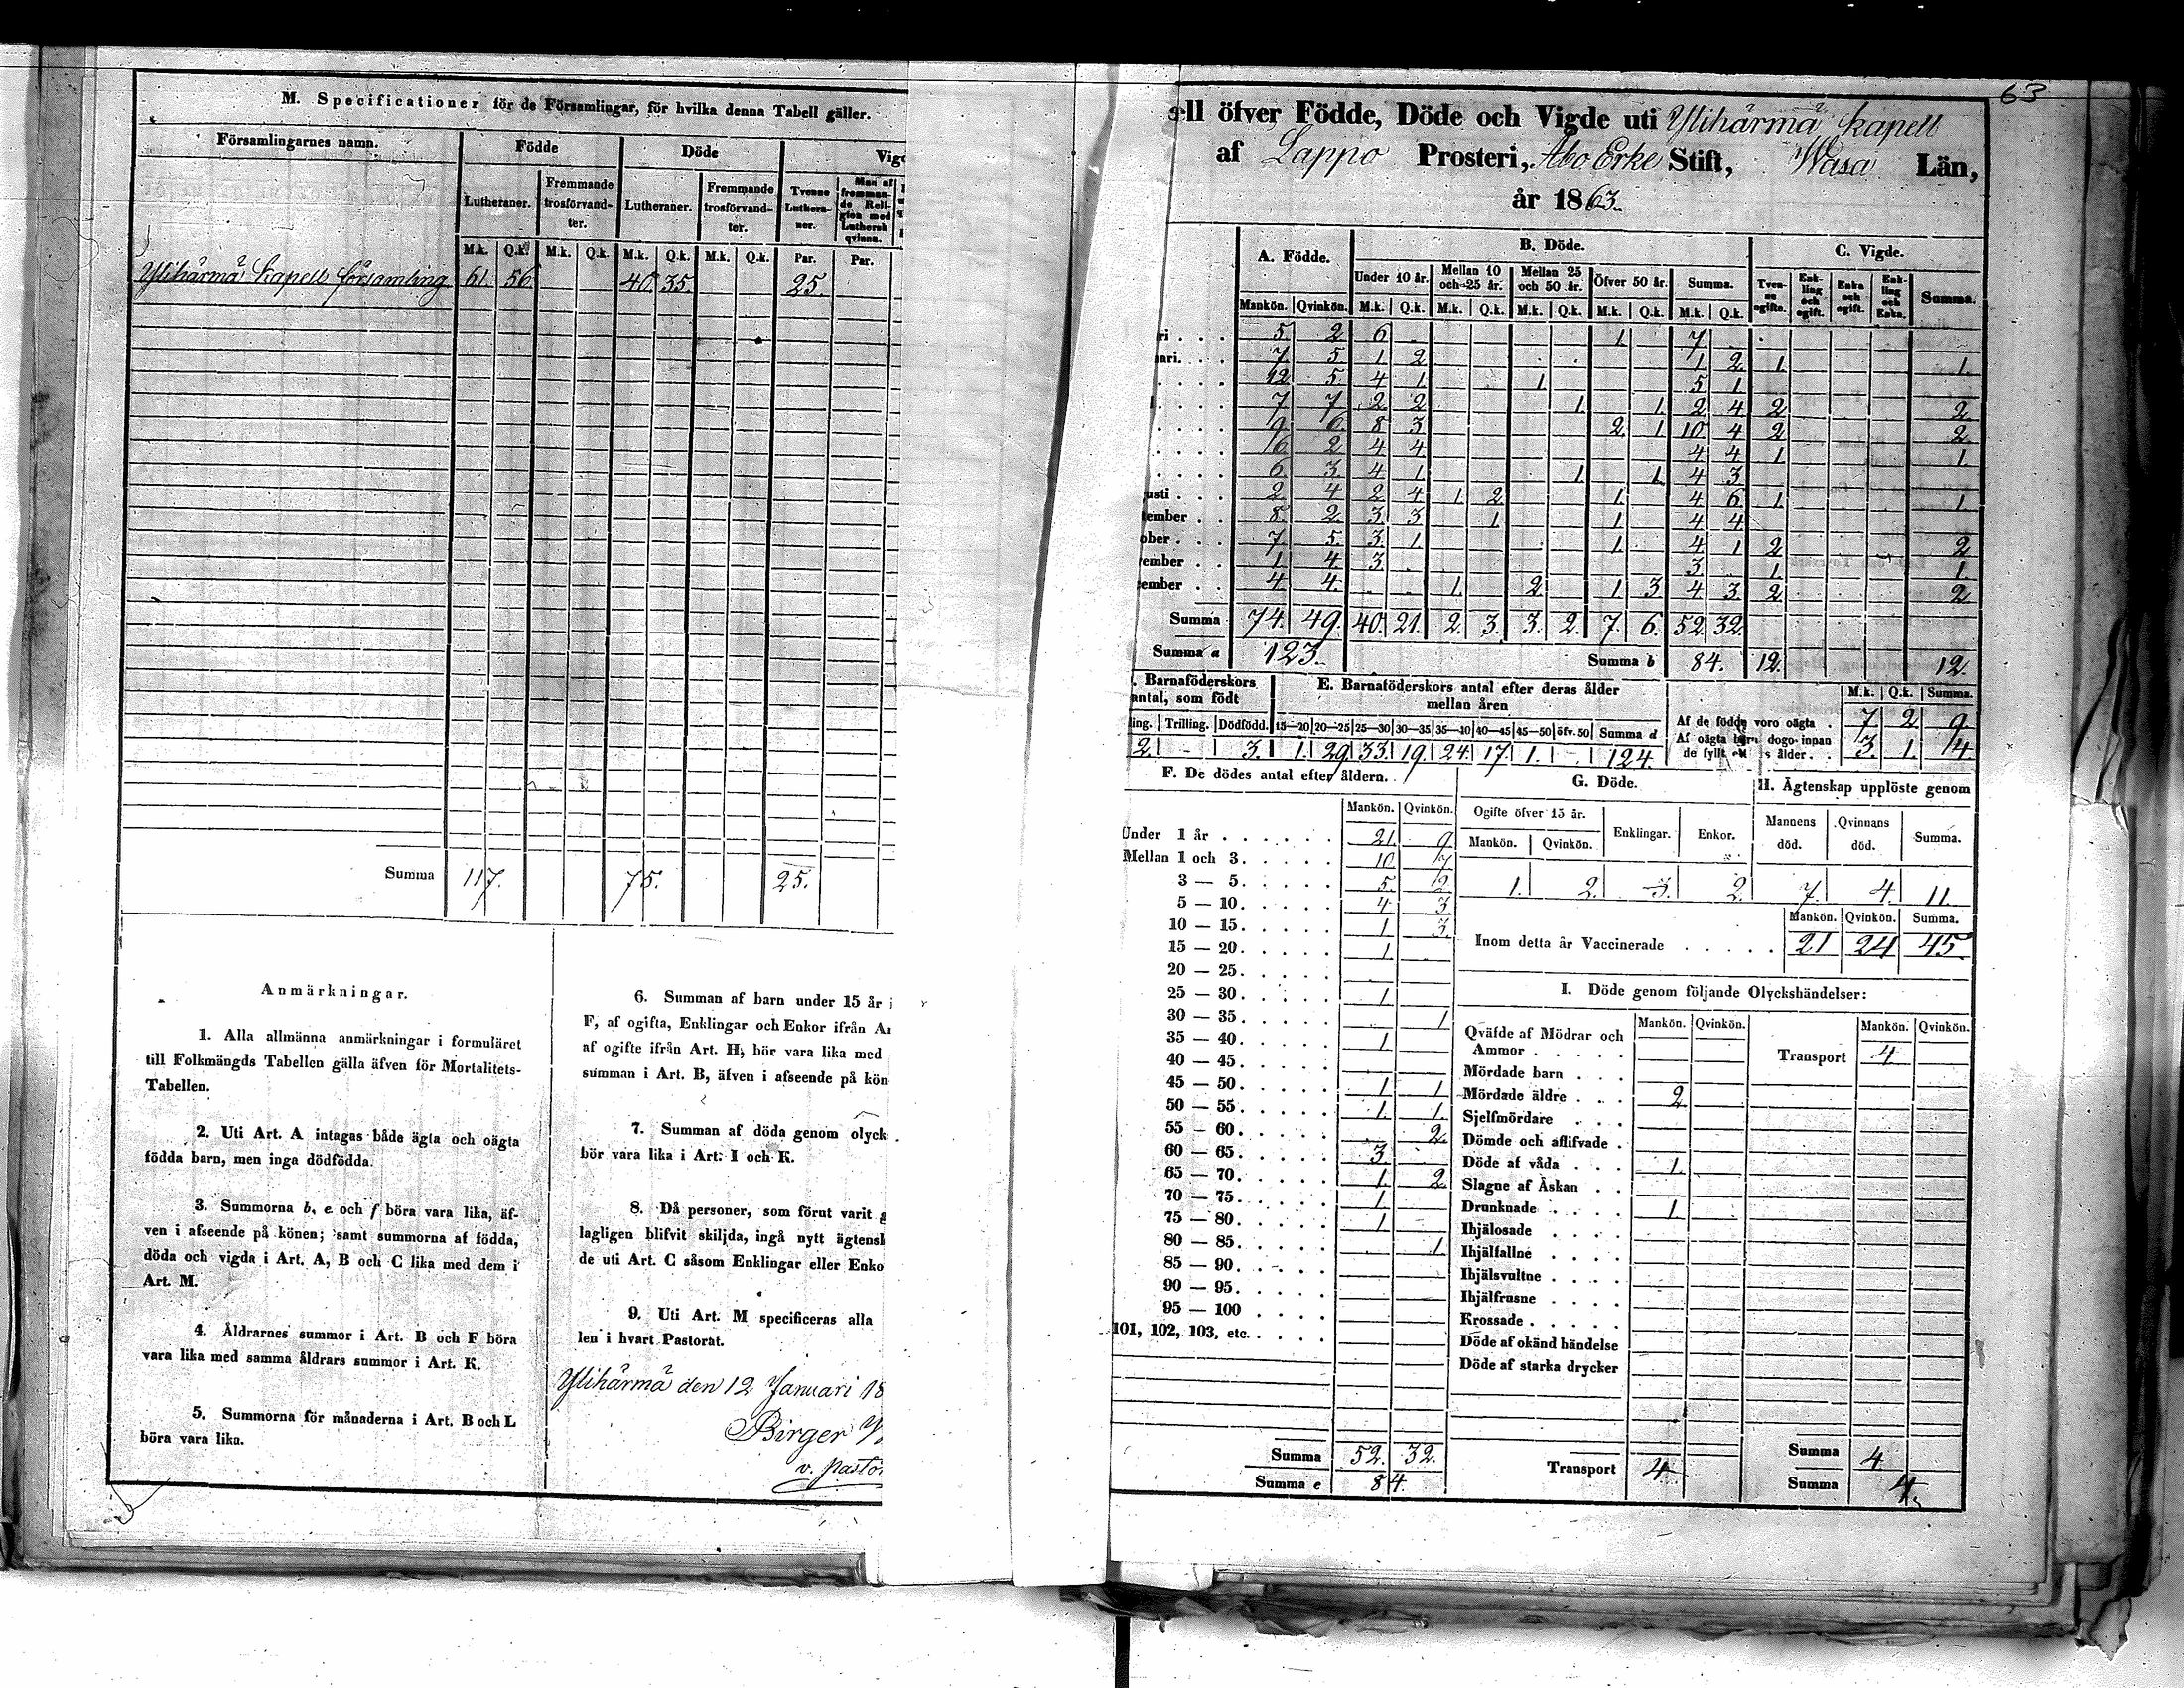 M. Specificationer för de Församlingar, för hvilka denna Tabell gäller.
Församlingarnes namn. Födde Döde
Lutheraner. Fremmande trosförvandter. Lutheraner. Fremmande trosförvandter. Tvenne Lutheraner. Man af fremmande Religion med Luthersk qvinna.
M.k. Q.k. M.k. Q.k. M.k. Q.k. M.k. Q.k. Par. Par.
Ylihärmä kapells församling 61. 56. 40. 35. 25.
Summa 117. 75. 25.
Anmärkningar.
1. Alla allmänna anmärkningar i formuläret
till Folkmängds Tabellen gälla äfven för Mortalitets-
Tabellen.
2. Uti Art. A intagas både ägta och oägta
födda barn, men inga dödfödda.
3. Summorna b, e och f böra vara lika, äf-
ven i afseende på könen; samt summorna af födda,
döda och vigda i Art. A, B och C lika med dem i
Art. M.
4. Åldrarnes summor i Art. B och F böra
vara lika med samma åldrars summor i Art. K.
5. Summorna för månaderna i Art. B och L
böra vara lika.
6. Summan af barn under 15 år i
F, af ogifta, Enklingar och Enkor ifrån
af ogifte ifrån Art. H, bör vara lika med
summan i Art. B, äfven i afseende på kön
7. Summan af döda genom olyck
bör vara lika i Art. I och K.
8. Då personer, som förut varit
lagligen blifvit skiljda, ingå nytt ägtens
de uti Art. C såsom Enklingar eller Enko
9. Uti Art. M specificeras alla
len i hvart Pastorat.
Ylihärmä den 12 Januari 18
Birger
v. pastor
63
ell öfver Födde, Döde och Vigde uti Ylihärmä kapell
af Lappo Prosteri, Åbo Erke Stift, Wasa Län,
år 1863.
A. Födde. B. Döde. C. Vigde.
Under 10 år. Mellan 10 och 25 år. Mellan 25 och 50 år. Öfver 50 år. Summa. Tvenne ogifte. Enkling och ogift. Enka och ogift. Enkling och Enka. Summa.
Mankön. Qvinkön. M.k. Q.k. M.k. Q.k. M.k. Q.k. M.k. Q.k. M.k. Q.k.
ri . . . 5. 2 6 1. 7
ari. . . 7. 5 1 2 1. 2 1. 1.
. . . 12 5. 4 1 1 5 1
. . . 7 7 2 2 1 1. 2 4 2 2
. . . 9 6. 8 3 2. 1 10 4 2 2
. . . 6 2 4 4 4 4 1 1.
. . . 6. 3. 4 1 1 1. 4 3
usti . . . 2 4 2 4 1. 2 1. 4 6. 1 1
tember . . 8. 2. 3. 3 1 1 4 4
ober . . . 7 5. 3. 1. 1. 4 1 2 2
vember . . 1 4 3 3 1. 1.
ember . . 4. 4. 1. 2. 1 3 4 3 2 2
Summa 74. 49. 40. 21. 2. 3. 3. 2. 7. 6. 52. 32.
Summa a 123. Summa b 84. 12. 12.
. Barnaföderskors antal, som födt
ling. Trilling. Dödfödd.
2. - 3.
E. Barnaföderskors antal efter deras ålder
mellan åren
15—20 20—25 25—30 30—35 35—40 40—45 45—50 öfv. 50 Summa d
1. 29. 33. 19. 24. 17. 1. 124.
M.k. Q.k. Summa.
Af de födde voro oägta . 7 2 9.
Af oägta barn dogo innan
de fyllt ett års ålder . . 3. 1. 4.
F. De dödes antal efter åldern.
Mankön. Qvinkön.
Under 1 år 21. 9.
Mellan 1 och 3 10 7
3 — 5 5. 2
5 — 10 4. 3
10 — 15 1 3.
15 — 20 1.
20 — 25
25 — 30 1
30 — 35 1
35 — 40 1.
40 — 45
45 — 50 1 1
50 — 55 1. 1.
55 — 60 2.
60 — 65 3.
65 — 70 1. 2.
70 — 75 1.
75 — 80 1
80 — 85 1.
85 — 90
90 — 95
95 — 100
101, 102, 103, etc.
Summa 52. 32.
Summa e 84.
G. Döde.
Ogifte öfver 15 år. Enklingar. Enkor.
Mankön. Qvinkön.
1. 2. 3. 2.
H. Ägtenskap upplöste genom
Mannens död. Qvinnans död. Summa.
7. 4. 11.
Mankön. Qvinkön. Summa.
Inom detta år Vaccinerade 21 24 45.
I. Döde genom följande Olyckshändelser:
Mankön. Qvinkön. Mankön. Qvinkön.
Qväfde af Mödrar och
Ammor Transport 4
Mördade barn
Mördade äldre 2
Sjelfmördare
Dömde och aflifvade
Döde af våda 1.
Slagne af Åskan
Drunknade 1.
Ihjälosade
Ihjälfallne
Ihjälsvultne
Ihjälfrusne
Krossade
Döde af okänd händelse
Döde af starka drycker
Summa 4
Transport 4
Summa 4.